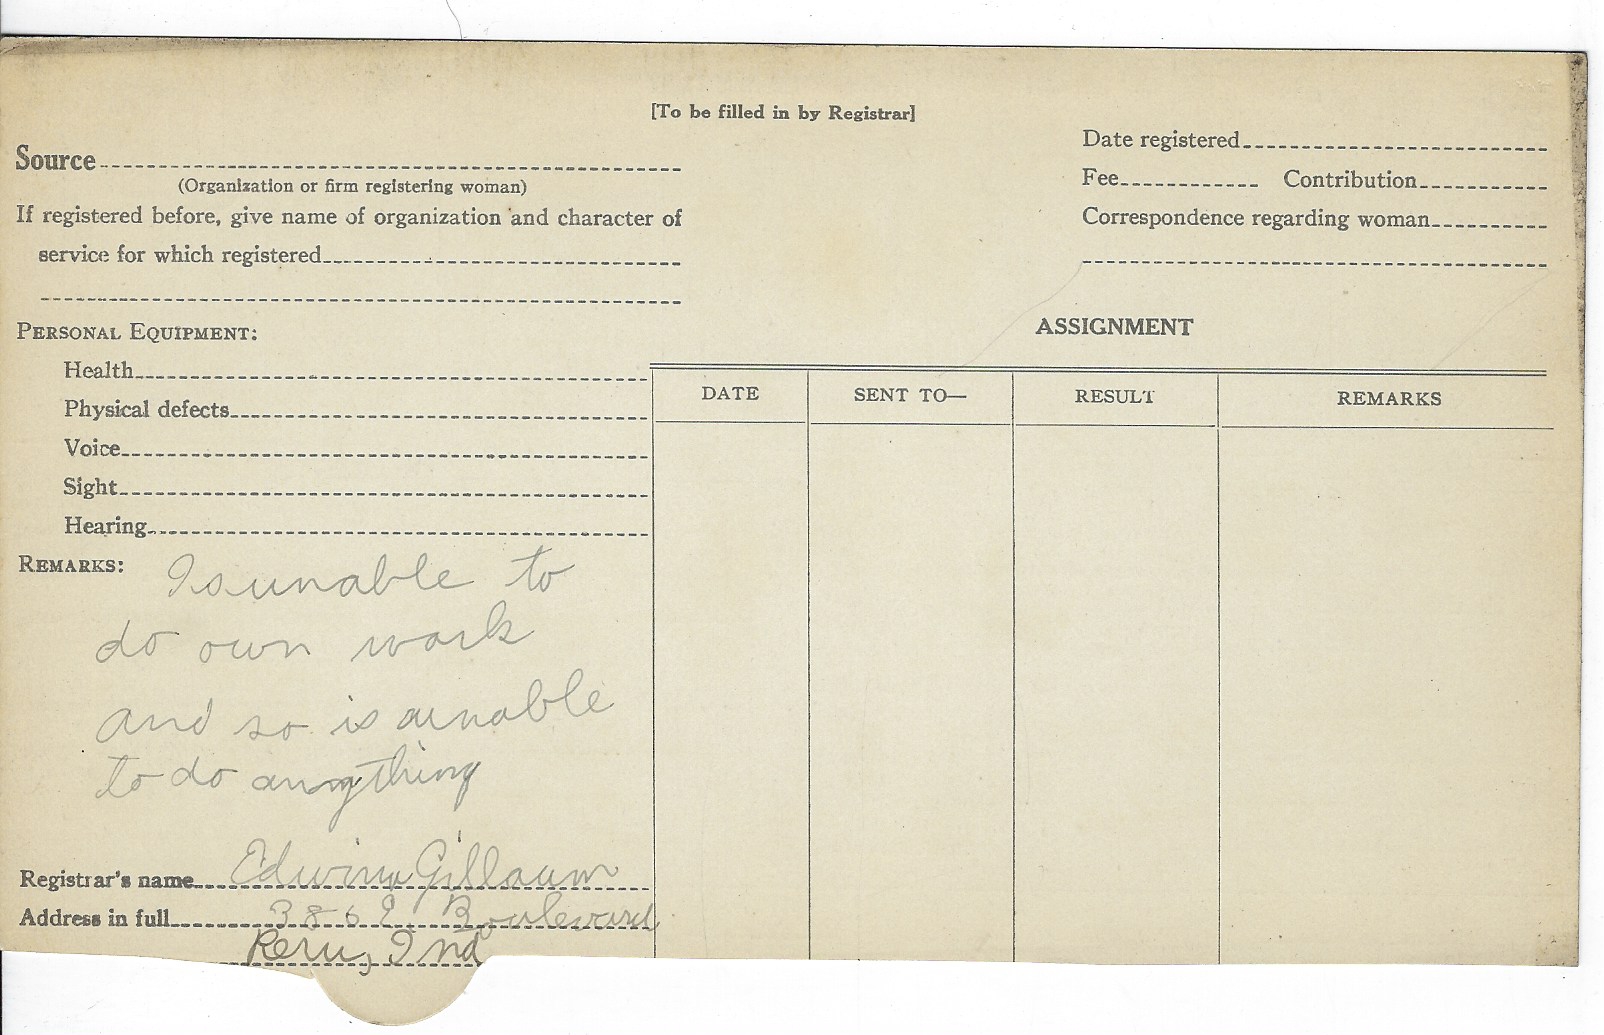 [To be filled in by Registrar]
Source
(Organization or firm registering woman)
If registered before, give name of organization and character of
service for which registered
Date registered
Fee Contribution
Correspondence regarding woman
PERSONAL EQUIPMENT:
Health
Physical defects
Voice
Sight
Hearing
ASSIGNMENT
DATE SENT TO— RESULT REMARKS
REMARKS: Is unable to
do own work
and so is unable
to do anything
Registrar's name Edwina Gillaum
Address in full 386 E. Boulevard
Peru, Ind